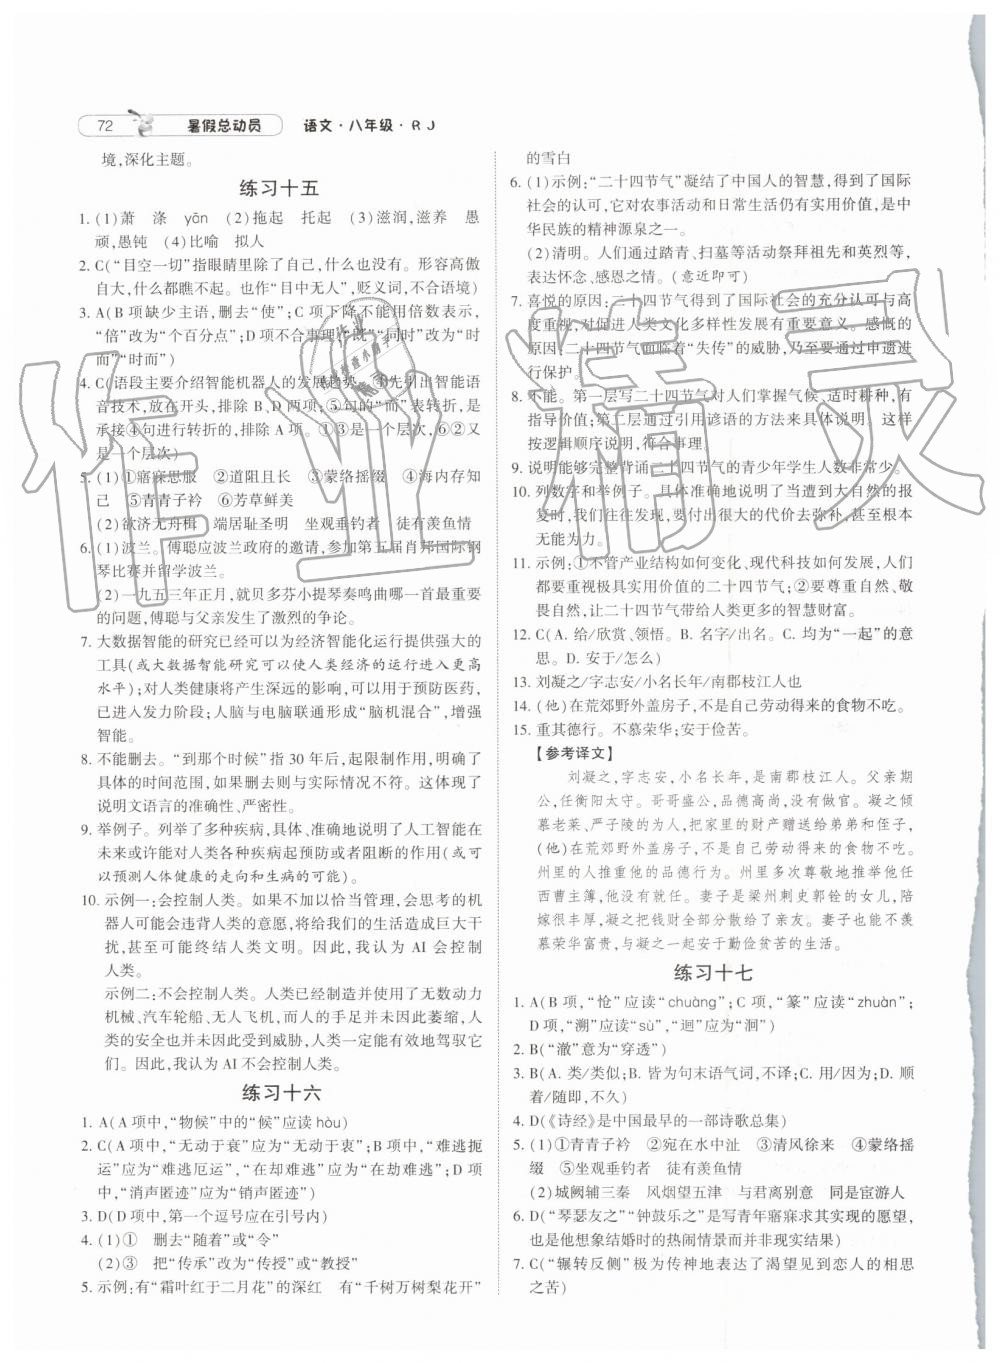 72 暑假总动员 语文·八年级·RJ
境,深化主题。
练习十五
1. (1)萧 涤 yān (2)拖起 托起 (3)滋润,滋养 愚
顽,愚钝 (4)比喻 拟人
2. C(“目空一切”指眼睛里除了自己,什么也没有。形容高傲
自大,什么都瞧不起。也作“目中无人”,贬义词,不合语境)
3. A(B项缺少主语,删去“使”;C项下降不能用倍数表示,
“倍”改为“个百分点”;D项不合事理,“既”“同时”改为“时
而”“时而”)
4. C(语段主要介绍智能机器人的发展趋势。③先引出智能语
音技术,放在开头,排除B、D两项;⑤句的“而”表转折,是
承接④句进行转折的,排除A项。①③是一个层次,⑥②又
是一个层次)
5. (1)①寤寐思服 ②道阻且长 ③蒙络摇缀 ④海内存知
己 ⑤青青子衿 ⑥芳草鲜美
(2)欲济无舟楫 端居耻圣明 坐观垂钓者 徒有羡鱼情
6. (1)波兰。傅聪应波兰政府的邀请,参加第五届肖邦国际钢
琴比赛并留学波兰。
(2)一九五三年正月,就贝多芬小提琴奏鸣曲哪一首最重要
的问题,傅聪与父亲发生了激烈的争论。
7. 大数据智能的研究已经可以为经济智能化运行提供强大的
工具(或大数据智能研究可以使人类经济的运行进入更高
水平);对人类健康将产生深远的影响,可以用于预防医药,
已进入发力阶段;人脑与电脑联通形成“脑机混合”,增强
智能。
8. 不能删去。“到那个时候”指30年后,把时间交代明确了
具体的时间范围,如果删去则与实际情况不符。这体现了
说明文语言的准确性、严密性。
9. 举例子。列举了多种疾病,具体、准确地说明了人工智能在
未来或许能对这些各种疾病起预防或者阻断的作用(或可
以预测人体健康的走向和生病的可能)。
10. 示例一:会控制人类。如果不加以恰当管理,会思考的机
器人可能会违背人类的意愿,将给我们的生活造成巨大干
扰,甚至可能终结人类文明。因此,我认为AI会控制
人类。
示例二:不会控制人类。人类已经制造并使用了无数动力
机械、汽车轮船、无人飞机,而人的手足并未因此萎缩,人
类的安全也并未因此受到威胁,人类一定能有效地驾驭它
们。因此,我认为AI不会控制人类。
练习十六
1. A(A项中,“物候”中的“候”应读hòu)
2. C(A项中,“无动于衰”应为“无动于衷”;B项中,“难逃扼
运”应为“难逃厄运”,“在却难逃”应为“在劫难逃”;D项
中,“消声匿迹”应为“销声匿迹”)
3. D(D项中,第一个逗号应在引号内)
4. (1)① 删去“随着”或“令”
(2)③ 把“传承”改为“传授”或“教授”
5. 示例:有“霜叶红于二月花”的深红 有“千树万树梨花开”
的雪白
6. (1)示例:“二十四节气”凝结了中国人的智慧,得到了国际
社会的认可,它对农事活动和日常生活仍有实用价值,是中
华民族的精神源泉之一。
(2)清明。人们通过踏青、扫墓等活动祭拜祖先和英烈等,
表达怀念、感恩之情。(意近即可)
7. 喜悦的原因:二十四节气得到了国际社会的充分认可与高
度重视,对促进人类文化多样性发展有重要意义。感慨的
原因:二十四节气面临着“失传”的威胁,乃至要通过申遗进
行保护。
8. 不能。第一层写二十四节气对人们掌握气候、适时耕种,有
指导价值;第二层通过引用谚语的方法来具体说明。这样
按逻辑顺序说明,符合事理。
9. 说明能够完整背诵二十四节气的青少年学生人数非常少。
10. 列数字和举例子。具体准确地说明了当遭到大自然的报
复时,我们往往发现,要付出很大的代价去弥补,甚至根本
无能为力。
11. 示例:①不管产业结构如何变化、现代科技如何发展,人们
都要重视极具实用价值的二十四节气;②要尊重自然、敬
畏自然,让二十四节气带给人类更多的智慧财富。
12. C(A. 给/欣赏、领悟。B. 名字/出名。C. 均为“一起”的意
思。D. 安于/怎么)
13. 刘凝之/字志安/小名长年/南郡枝江人也
14. (他)在荒郊野外盖房子,不是自己劳动得来的食物不吃。
15. 重其德行。不慕荣华;安于俭苦。
【参考译文】
刘凝之,字志安,小名长年,是南郡枝江人。父亲期
公,任衡阳太守。哥哥盛公,品德高尚,没有做官。凝之倾
慕老莱、严子陵的为人,把家里的财产赠送给弟弟和侄子,
(他)在荒郊野外盖房子,不是自己劳动得来的食物不吃。
州里的人推重他的品德行为。州里多次尊敬地推举他任
西曹主簿,他没有就任。妻子是梁州刺史郭铨的女儿,陪
嫁很丰厚,凝之把钱财全部分散给了亲友。妻子也能不羡
慕荣华富贵,与凝之一起安于勤俭贫苦的生活。
练习十七
1. A(B项,“怆”应读“chuàng”;C项,“篆”应读“zhuàn”;
D项,“溯”应读“sù”,“迴”应为“洄”)
2. B(“澈”意为“穿透”)
3. B(A. 类/类似;B. 皆为句末语气词,不译;C. 用/因为;D. 顺
着/随即,不久)
4. D(《诗经》是中国最早的一部诗歌总集)
5. (1)①青青子衿 ②宛在水中沚 ③清风徐来 ④蒙络摇
缀 ⑤坐观垂钓者 徒有羡鱼情
(2)城阙辅三秦 风烟望五津 与君离别意 同是宦游人
6. D(“琴瑟友之”“钟鼓乐之”是写青年寤寐求其实现的愿望,
也是他想象结婚时的热闹情景而并非现实结果)
7. C(“辗转反侧”极为传神地表达了渴望见到恋人的相思
之苦)